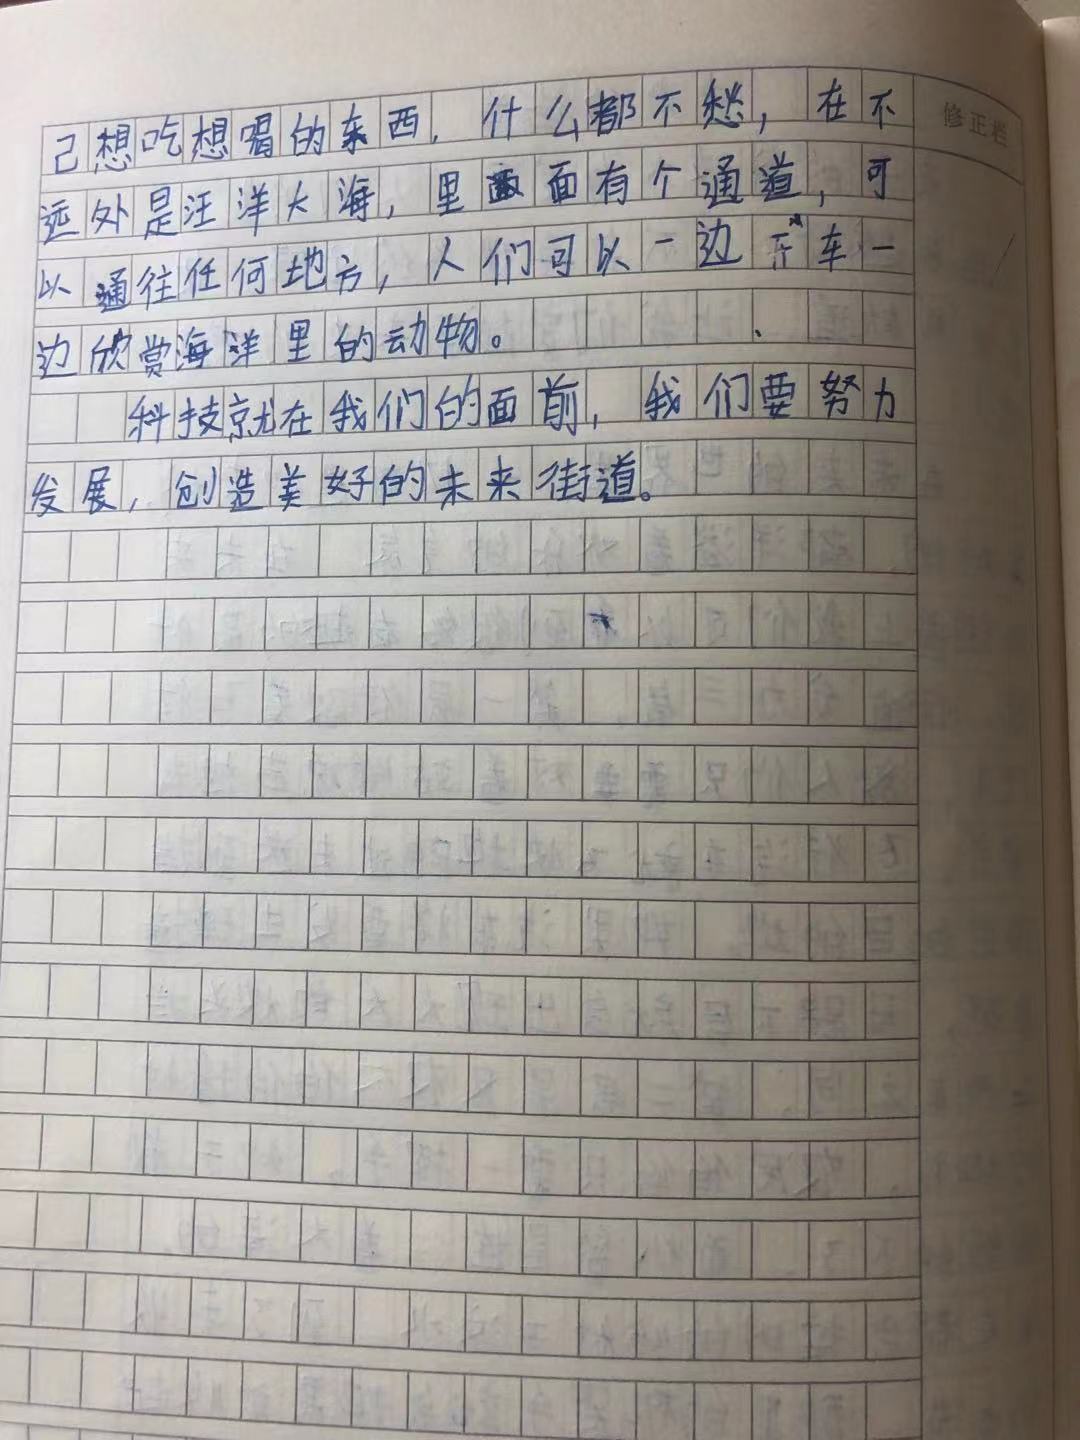 修正栏
己想吃想喝的东西，什么都不愁，在不
远处是汪洋大海，里面有个通道，可
以通往任何地方，人们可以一边开车一
边欣赏海洋里的动物。
科技就在我们的面前，我们要努力
发展，创造美好的未来街道。